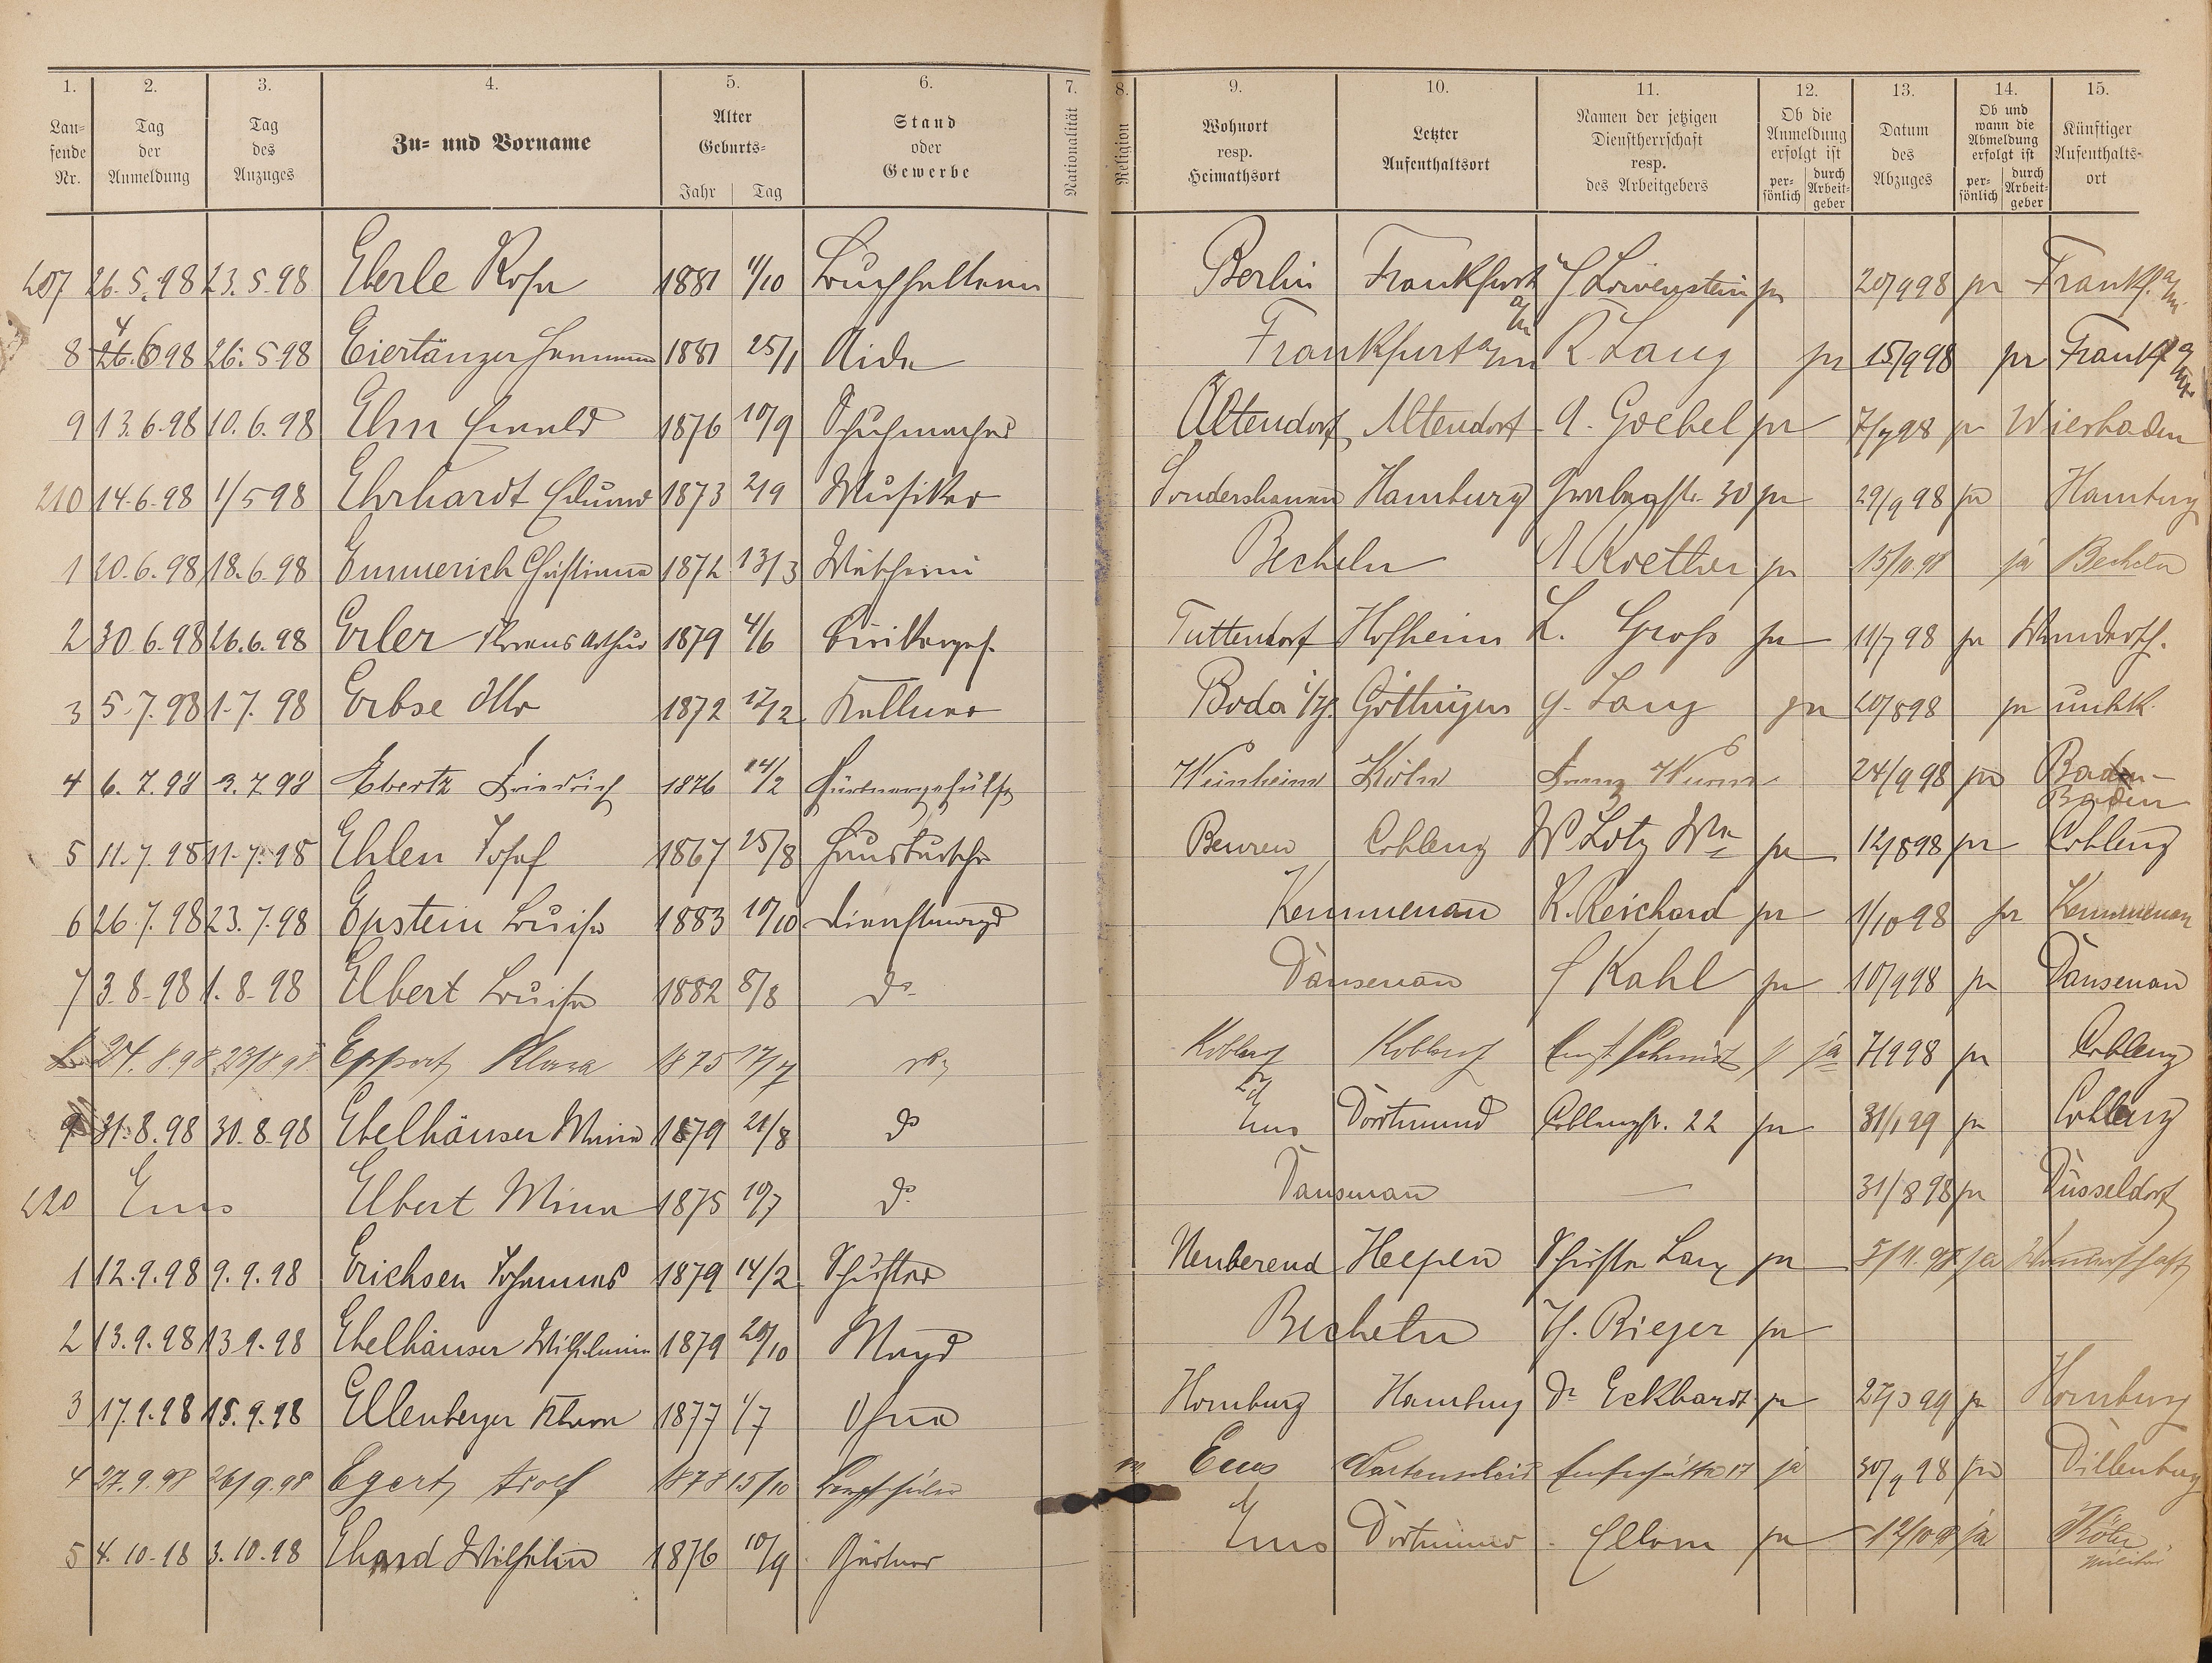 1. 2. 3. 4. 5. 6. 7. 8. 9. 10. 11. 12. 13. 14. 15.
Lau-
fende
Nr.
Tag
der
Anmeldung
Tag
des
Anzuges
Zu- und Vorname
Alter
Geburts-
Jahr Tag
Stand
oder
Gewerbe
Nationalität
Religion
Wohnort
resp.
Heimathsort
Letzter
Aufenthaltsort
Namen der jetzigen
Dienstherrschaft
resp.
des Arbeitgebers
Ob die
Anmeldung
erfolgt ist
per-
sönlich
durch
Arbeit-
geber
Datum
des
Abzuges
Ob und
wann die
Abmeldung
erfolgt ist
per-
sönlich
durch
Arbeit-
geber
Künftiger
Aufenthalts-
ort
207 26.5.98 23.5.98 Eberle Rosa 1881 4/10 Buchhalterin Berlin Frankfurt a/M Löwenstein pr 20/9 98 pr Frankf. a/M.
8 26.6 98 26.5.98 Eiertänzer 1881 25/1 Aide Frankfurt a/M R. Lang pr 15/9 98 pr Frankf a/M
9 13.6.98 10.6.98 Elm Ewald 1876 10/9 Schuhmacher Altendorf Altendorf A. Goebel pr 7/7 98 pr Wiesbaden
210 14.6.98 1/5 98 Ehrhardt Eduard 1873 2/9 Musiker Sondershausen Hamburg 30 pr 29/9 98 pr Hamburg
1 20.6.98 18.6.98 Emmerich Christiane 1872 13/3 Becheln A Koether pr 15/11.98 ja Becheln
2 30.6.98 26.6.98 Erler Arthur 1879 4/6 Tuttendorf Hofheim L. Groß pr 11/7 98 pr Wandersch.
3 5.7.98 1.7.98 Erbse Otto 1872 12/2 Kellner Roda Göttingen G. Lang pr 20/8 98 pr unbk.
4 6.7.98 3.7.98 Ebertz Friedrich 1876 14/2 Gärtnergehülfe Weinheim Köln Franz 24/9 98 pr Baden-
Baden
5 11.7.98 11.7.98 Ehlen Josef 1867 25/8 Hausbursche Beuren Coblenz W Lotz Ww pr 12/8 98 pr Coblenz
6 26.7.98 23.7.98 Epstein Luise 1883 10/10 Dienstmagd Kemmenau K. Reichard pr 1/10 98 pr Kemmenau
7 3.8.98 1.8.98 Elbert Luise 1882 8/8 do Dausenau Kahl pr 10/9 98 pr Dausenau
8 24.8.98 23/8 98 Klara 1875 17/7 do Koblenz Koblenz Ernst Schmidt ja 7/9 98 pr Coblenz
9 31.8.98 30.8.98 Ebelhäuser Minna 1879 21/8 do Ems Dortmund Coblenzstr. 22 pr 31/1 99 pr Coblenz
220 Ems Elbert Minna 1875 10/7 do Dausenau — 31/8 98 pr Düsseldorf
1 12.9.98 9.9.98 Erichsen Johannes 1879 14/2 Schuster Neuberend Heepen Schuster Lang pr 5/11.98 ja Wanderschaft
2 13.9.98 13 9.98 Ebelhäuser Wilhelmine 1879 20/10 Magd Becheln H. Rieger pr
3 17.9.98 15.9.98 Ellenberger 1877 1/7 Homburg Hamburg Dr Eckhardt pr 27/3 99 pr Homburg
4 27.9.98 26/9.98 Egert Adolf 1878 15/10 Ems 17 ja 30/9 98 pr Dillenburg
5 4.10.98 3.10.98 Ehard Wilhelm 1876 10/9 Gärtner Ems Dortmund pr 12/10 98 ja Köln
Militär